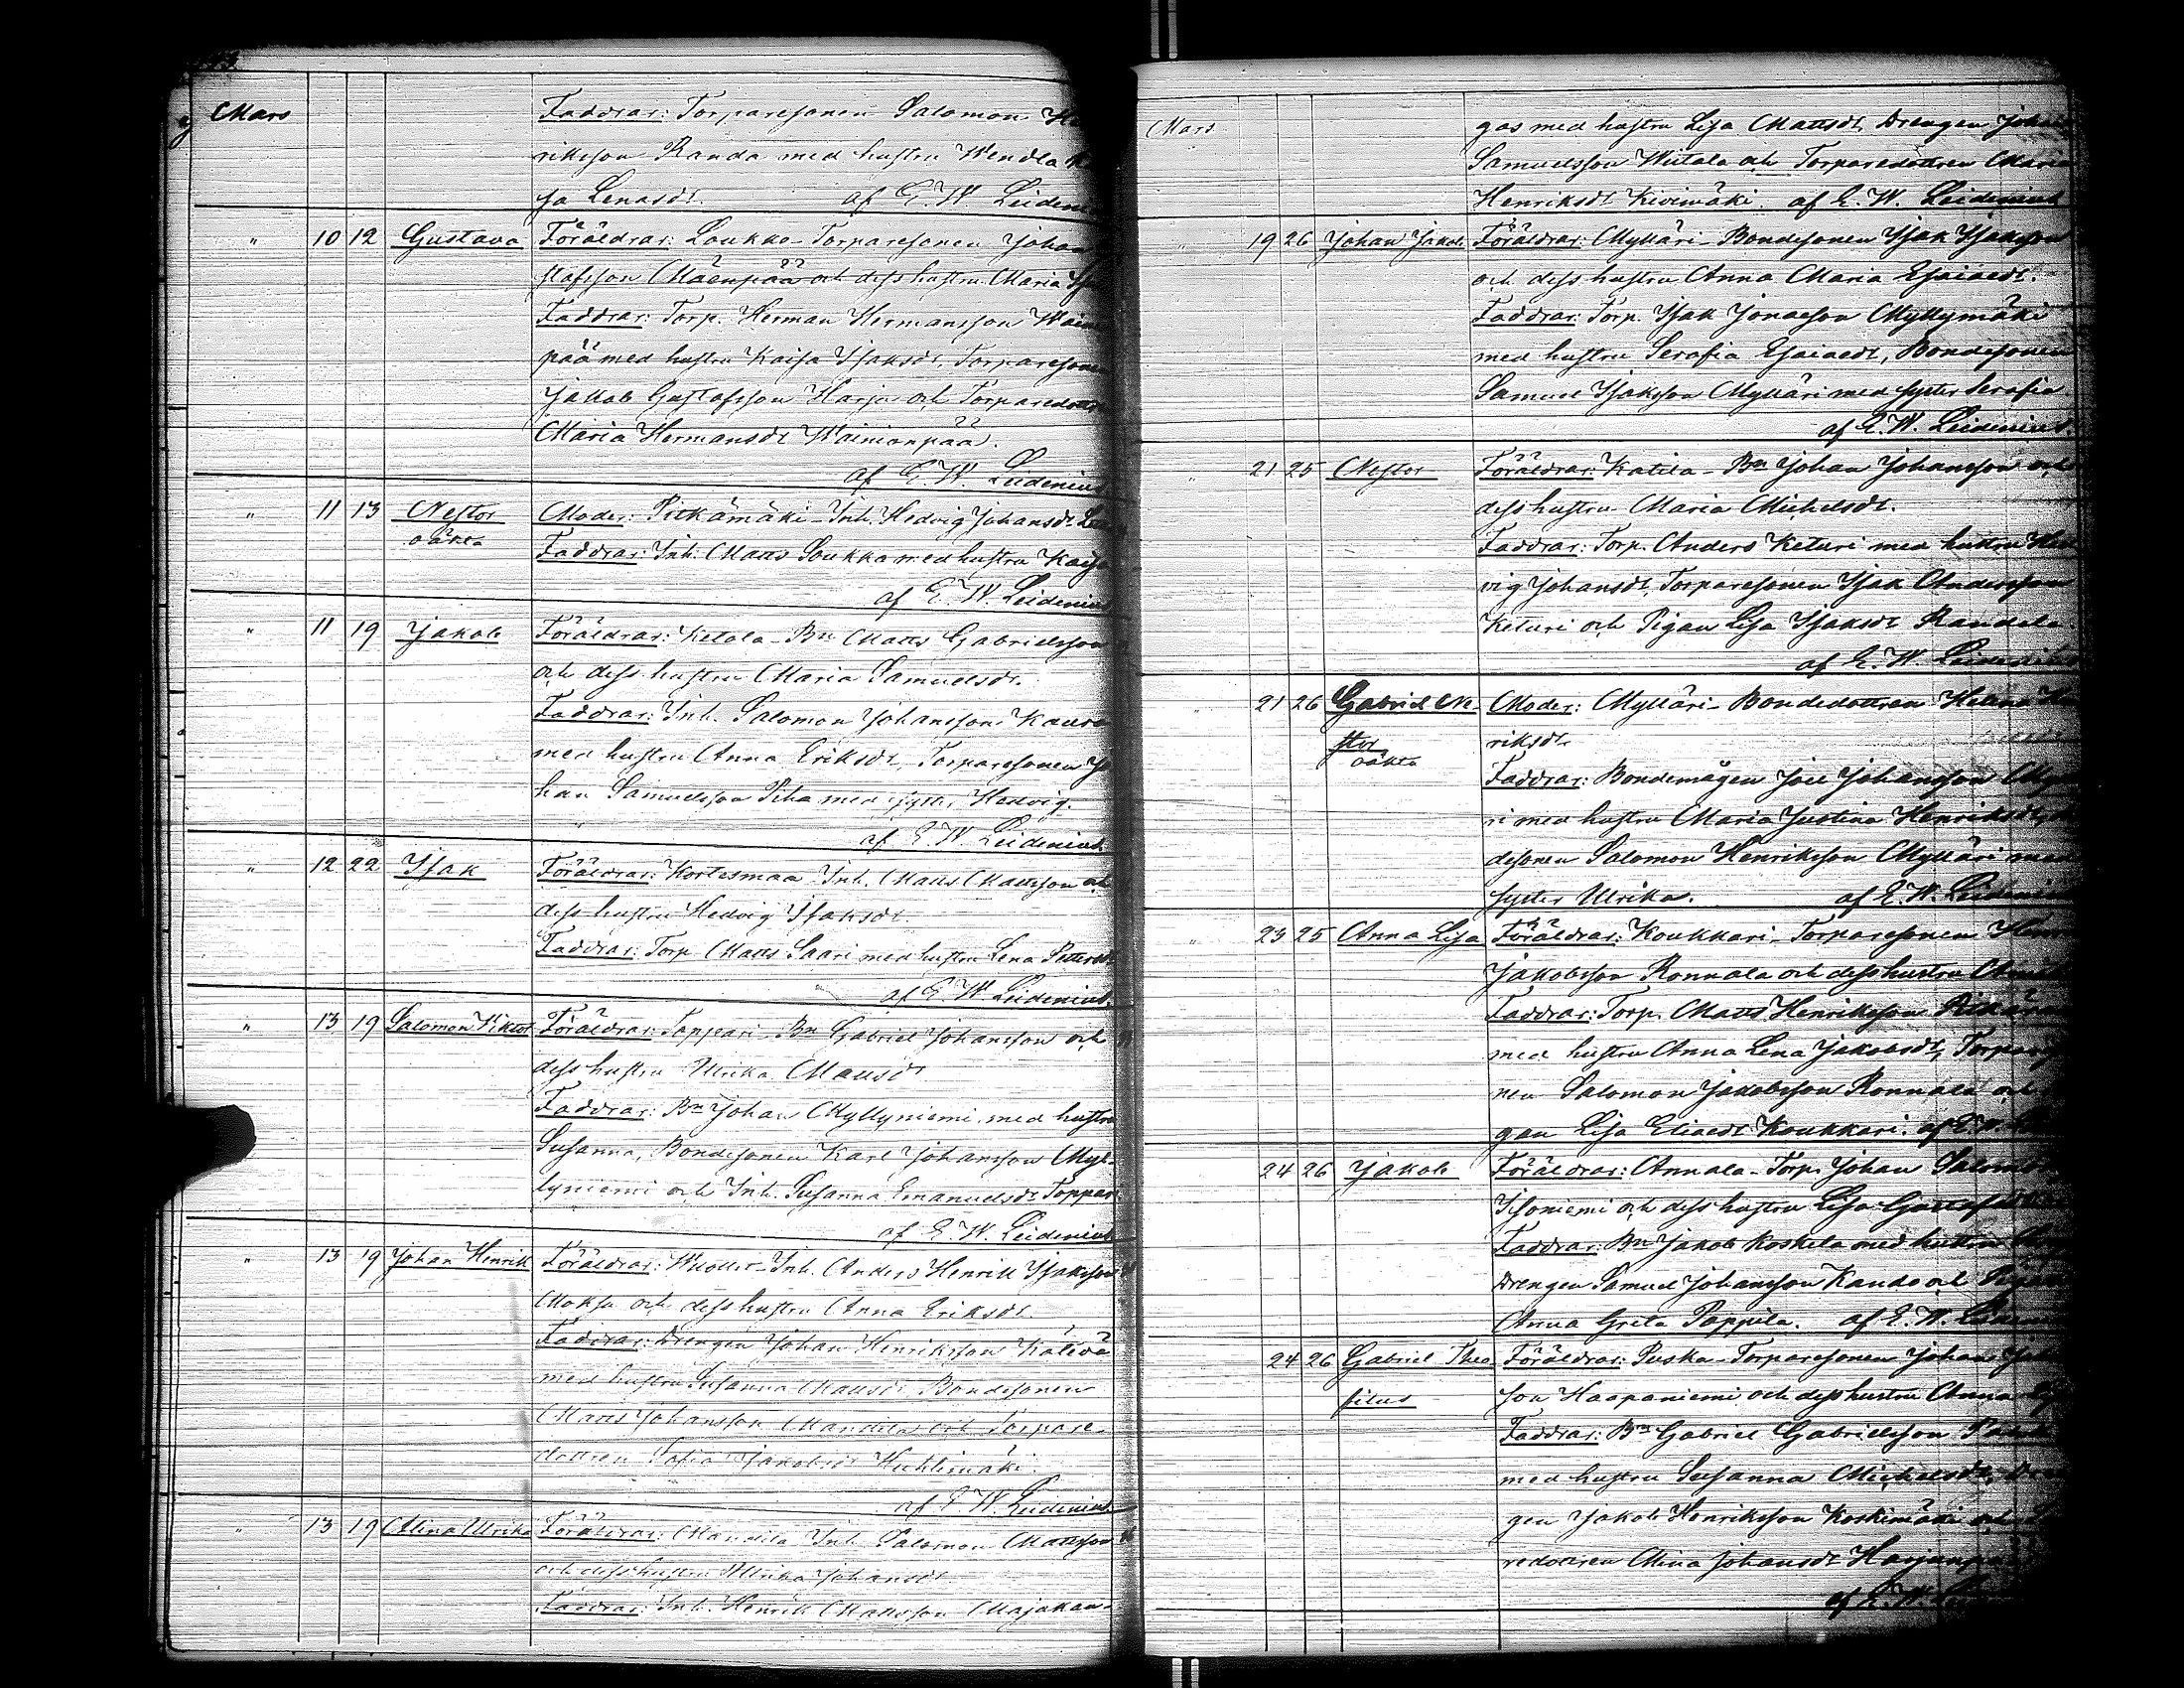 Mars
Faddrar: Torparesonen Salomon
riksson Randa med hustru Wendla
sa Lenasdr. af E. W. Leidenius
" 10 12 Gustava Föräldrar: Loukko-Torparesonen Johan
stafsson Mäenpää och dess hustru Maria
Faddrar: Torp. Herman Hermansson
pää med hustru Kaisa Isaksdr, Torparesonen
Jakob Gustafsson Harju och Torparedottr
Maria Hermansdr Wainionpää.
af E. W. Leidenius
" 11 13 Nestor Moder: Pitkämäki-Inh. Hedvig Johansdr
oäkta Faddrar: Inh. Matts Loukko med hustru Kaisa
af E. W. Leidenius
" 11 19 Jakob Föräldrar: Ketola-Bn Matts Gabrielsson
och dess hustru Maria Samuelsdr.
Faddrar: Inh. Salomon Johansson
med hustru Anna Eriksdr, Torparesonen Jo
han Samuelsson Piha med syster Hedvig.
af E W Leidenius
" 12 22 Isak Föräldrar: Kortesmaa-Inh. Matts Mattsson och
dess hustru Hedvig Isaksdr
Faddrar: Torp Matts Saari med hustru Lena
af E. W. Leidenius
" 13 19 Salomon Viktor Föräldrar: Toppari-Bn Gabriel Johansson och
dess hustru Ulrika Mattsdr
Faddrar: Bn Johan Myllyniemi med hustru
Susanna, Bondesonen Karl Johansson Myl-
lyniemi och Inh. Susanna Emanuelsdr Toppari
af E. W. Leidenius
" 13 19 Johan Henrik Föräldrar: Inh. Anders Henrik Isaksson
Moksu och dess hustru Anna Eriksdr.
Faddrar: Drengen Johan Henriksson
med hustru Susanna Mattsdr Bondesonen
Matts Johansson Mandila och Torpare-
dottren Sofia Jakobsdr Huhtimäki.
af E W Leidenius
" 13 19 Alina Ulrika Föräldrar: Mandila Inh Salomon Mattsson
och dess hustru Ulrika Johansdr
Faddrar: Inh. Henrik Mattsson Majakan-
Mars
gas med hustru Lisa Mattsdr, Drengen Johan
Samuelsson Wiitala och Torparedottren Maria
Henriksdr Kivimäki. af E. W. Leidenius
" 19 26 Johan Jakob Föräldrar: Mylläri-Bondesonen Isak Isaksson
och dess hustru Anna Maria Esaiaedr.
Faddrar: Torp. Isak Jonaeson Myllymäki
med hustru Serafia Esaiaedr, Bondesonen
Samuel Isaksson Mylläri med syster Serafia
af E. W. Leidenius.
" 21 25 Nestor Föräldrar: Katila-Bn Johan Johansson och
dess hustru Maria Michelsdr.
Faddrar: Torp. Anders Keturi med hustru
vig Johansdr, Torparesonen Isak Andersson
Keturi och Pigan Lisa Isaksdr Randala
af E. W. Leidenius
" 21 26 Gabriel Ne- Moder: Mylläri-Bondedottren Helena
stor riksdr
oäkta Faddrar: Bondemågen Joel Johansson
ri med hustru Maria Justina Henriksdr,
desonen Salomon Henriksson Mylläri med
syster Ulrika. af E. W. Leidenius
" 23 25 Anna Lisa Föräldrar: Koukkari-Torparesonen
Jakobsson Ronnala och dess hustru
Faddrar: Torp. Matts Henriksson
med hustru Anna Lena Jakobsdr,
nen Salomon Jakobsson Ronnala och
gan Lisa Eliaedr Koukkari. af E. W.
24 26 Jakob Föräldrar: Annala-Torp. Johan
Isoniemi och dess hustru Lisa
Faddrar: Bn Jakob Koskela med hustru
Drengen Samuel Johansson och
Anna Greta Pappila. af E. W.
24 26 Gabriel Theo Föräldrar: Puska-Torparesonen Johan
filus son Haapaniemi och dess hustru Anna
Faddrar: Bn Gabriel Gabrielsson
med hustru Susanna Michelsdr,
gen Jakob Henriksson Koskimäki och
redottren Mina Johansdr
af E. W.